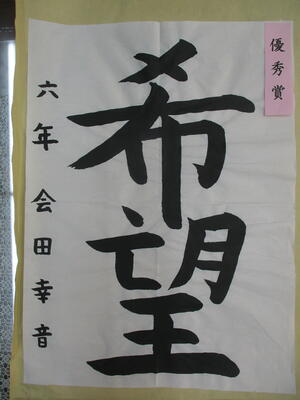 優秀賞
希望
六年 会田幸音